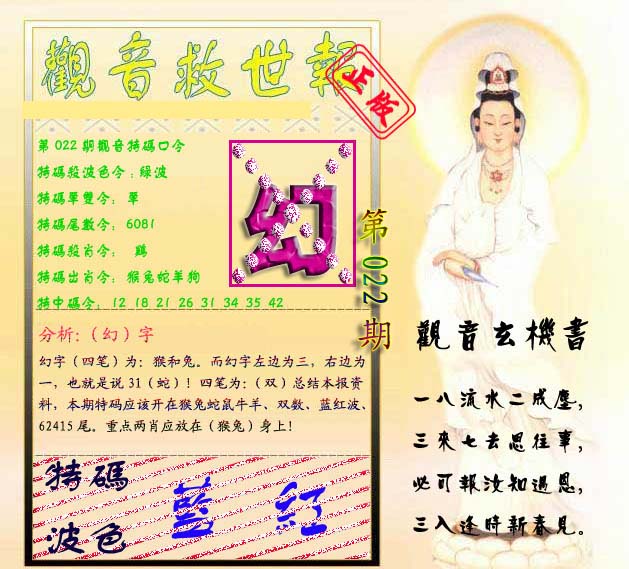 觀音救世報
正版
第022期觀音特碼口令
特碼殺波色令:綠波
特碼單雙令: 單
特碼尾數令: 6081
特碼殺肖令: 鷄
特碼出肖令: 猴兔蛇羊狗
特中碼令: 12 18 21 26 31 34 35 42
幻
第022期
分析:(幻)字
幻字(四笔)为:猴和兔。而幻字左边为三,右边为
一,也就是说31(蛇)!四笔为:(双)总结本报资
料,本期特码应该开在猴兔蛇鼠牛羊、双数、蓝红波、
62415尾。重点两肖应放在(猴兔)身上!
特碼
波色
藍 紅
觀音玄機書
一八流水二成塵,
三來七去思往事,
必可報汝知遇恩,
三入逢時新春見。